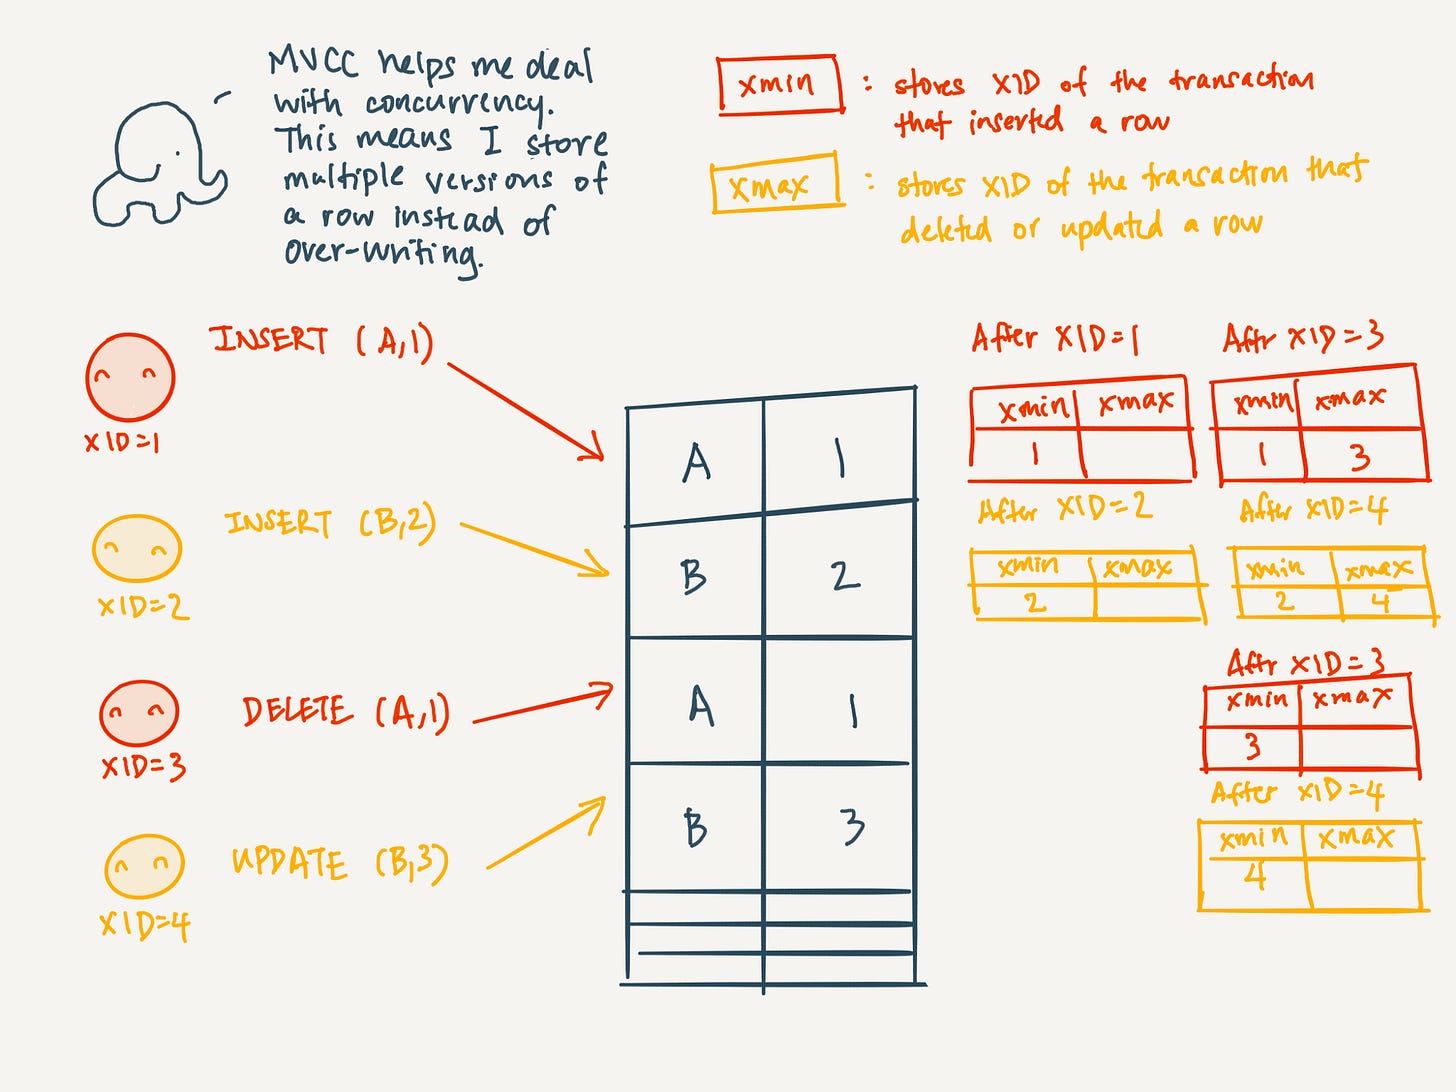 MVCC helps me deal
with concurrency.
This means I store
multiple versions of
a row instead of
over-writing.
xmin : stores XID of the transaction
that inserted a row
xmax : stores XID of the transaction that
deleted or updated a row
INSERT (A,1)
XID=1
INSERT (B,2)
XID=2
DELETE (A,1)
XID=3
UPDATE (B,3)
XID=4
A 1
B 2
A 1
B 3
After XID=1
xmin xmax
1
After XID=3
xmin xmax
1 3
After XID=2
xmin xmax
2
After XID=4
xmin xmax
2 4
After XID=3
xmin xmax
3
After XID=4
xmin xmax
4